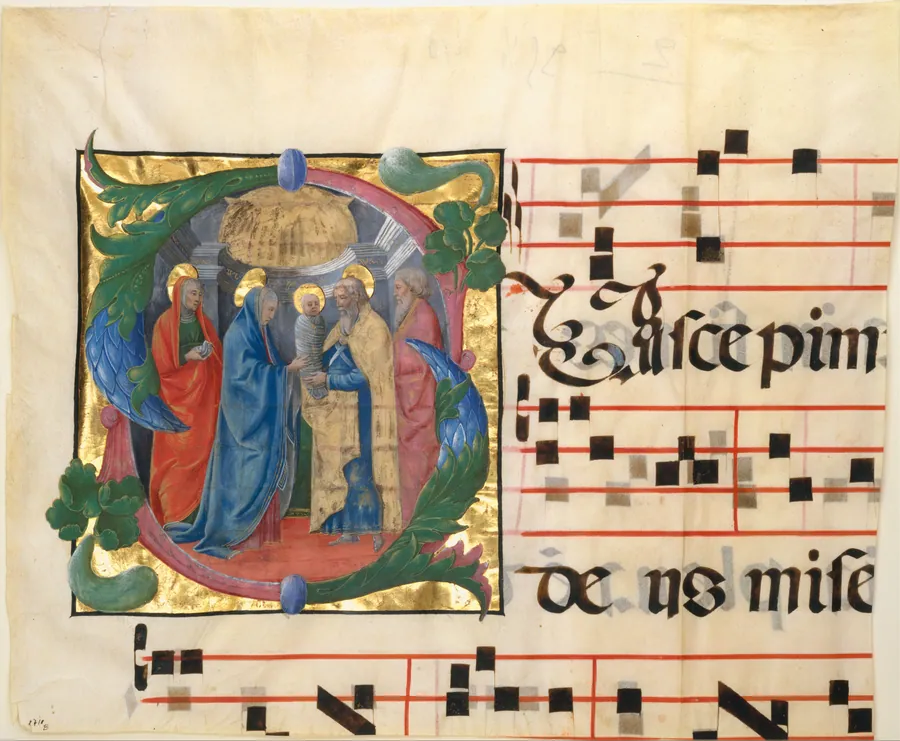 SUſcepim
de us miſe